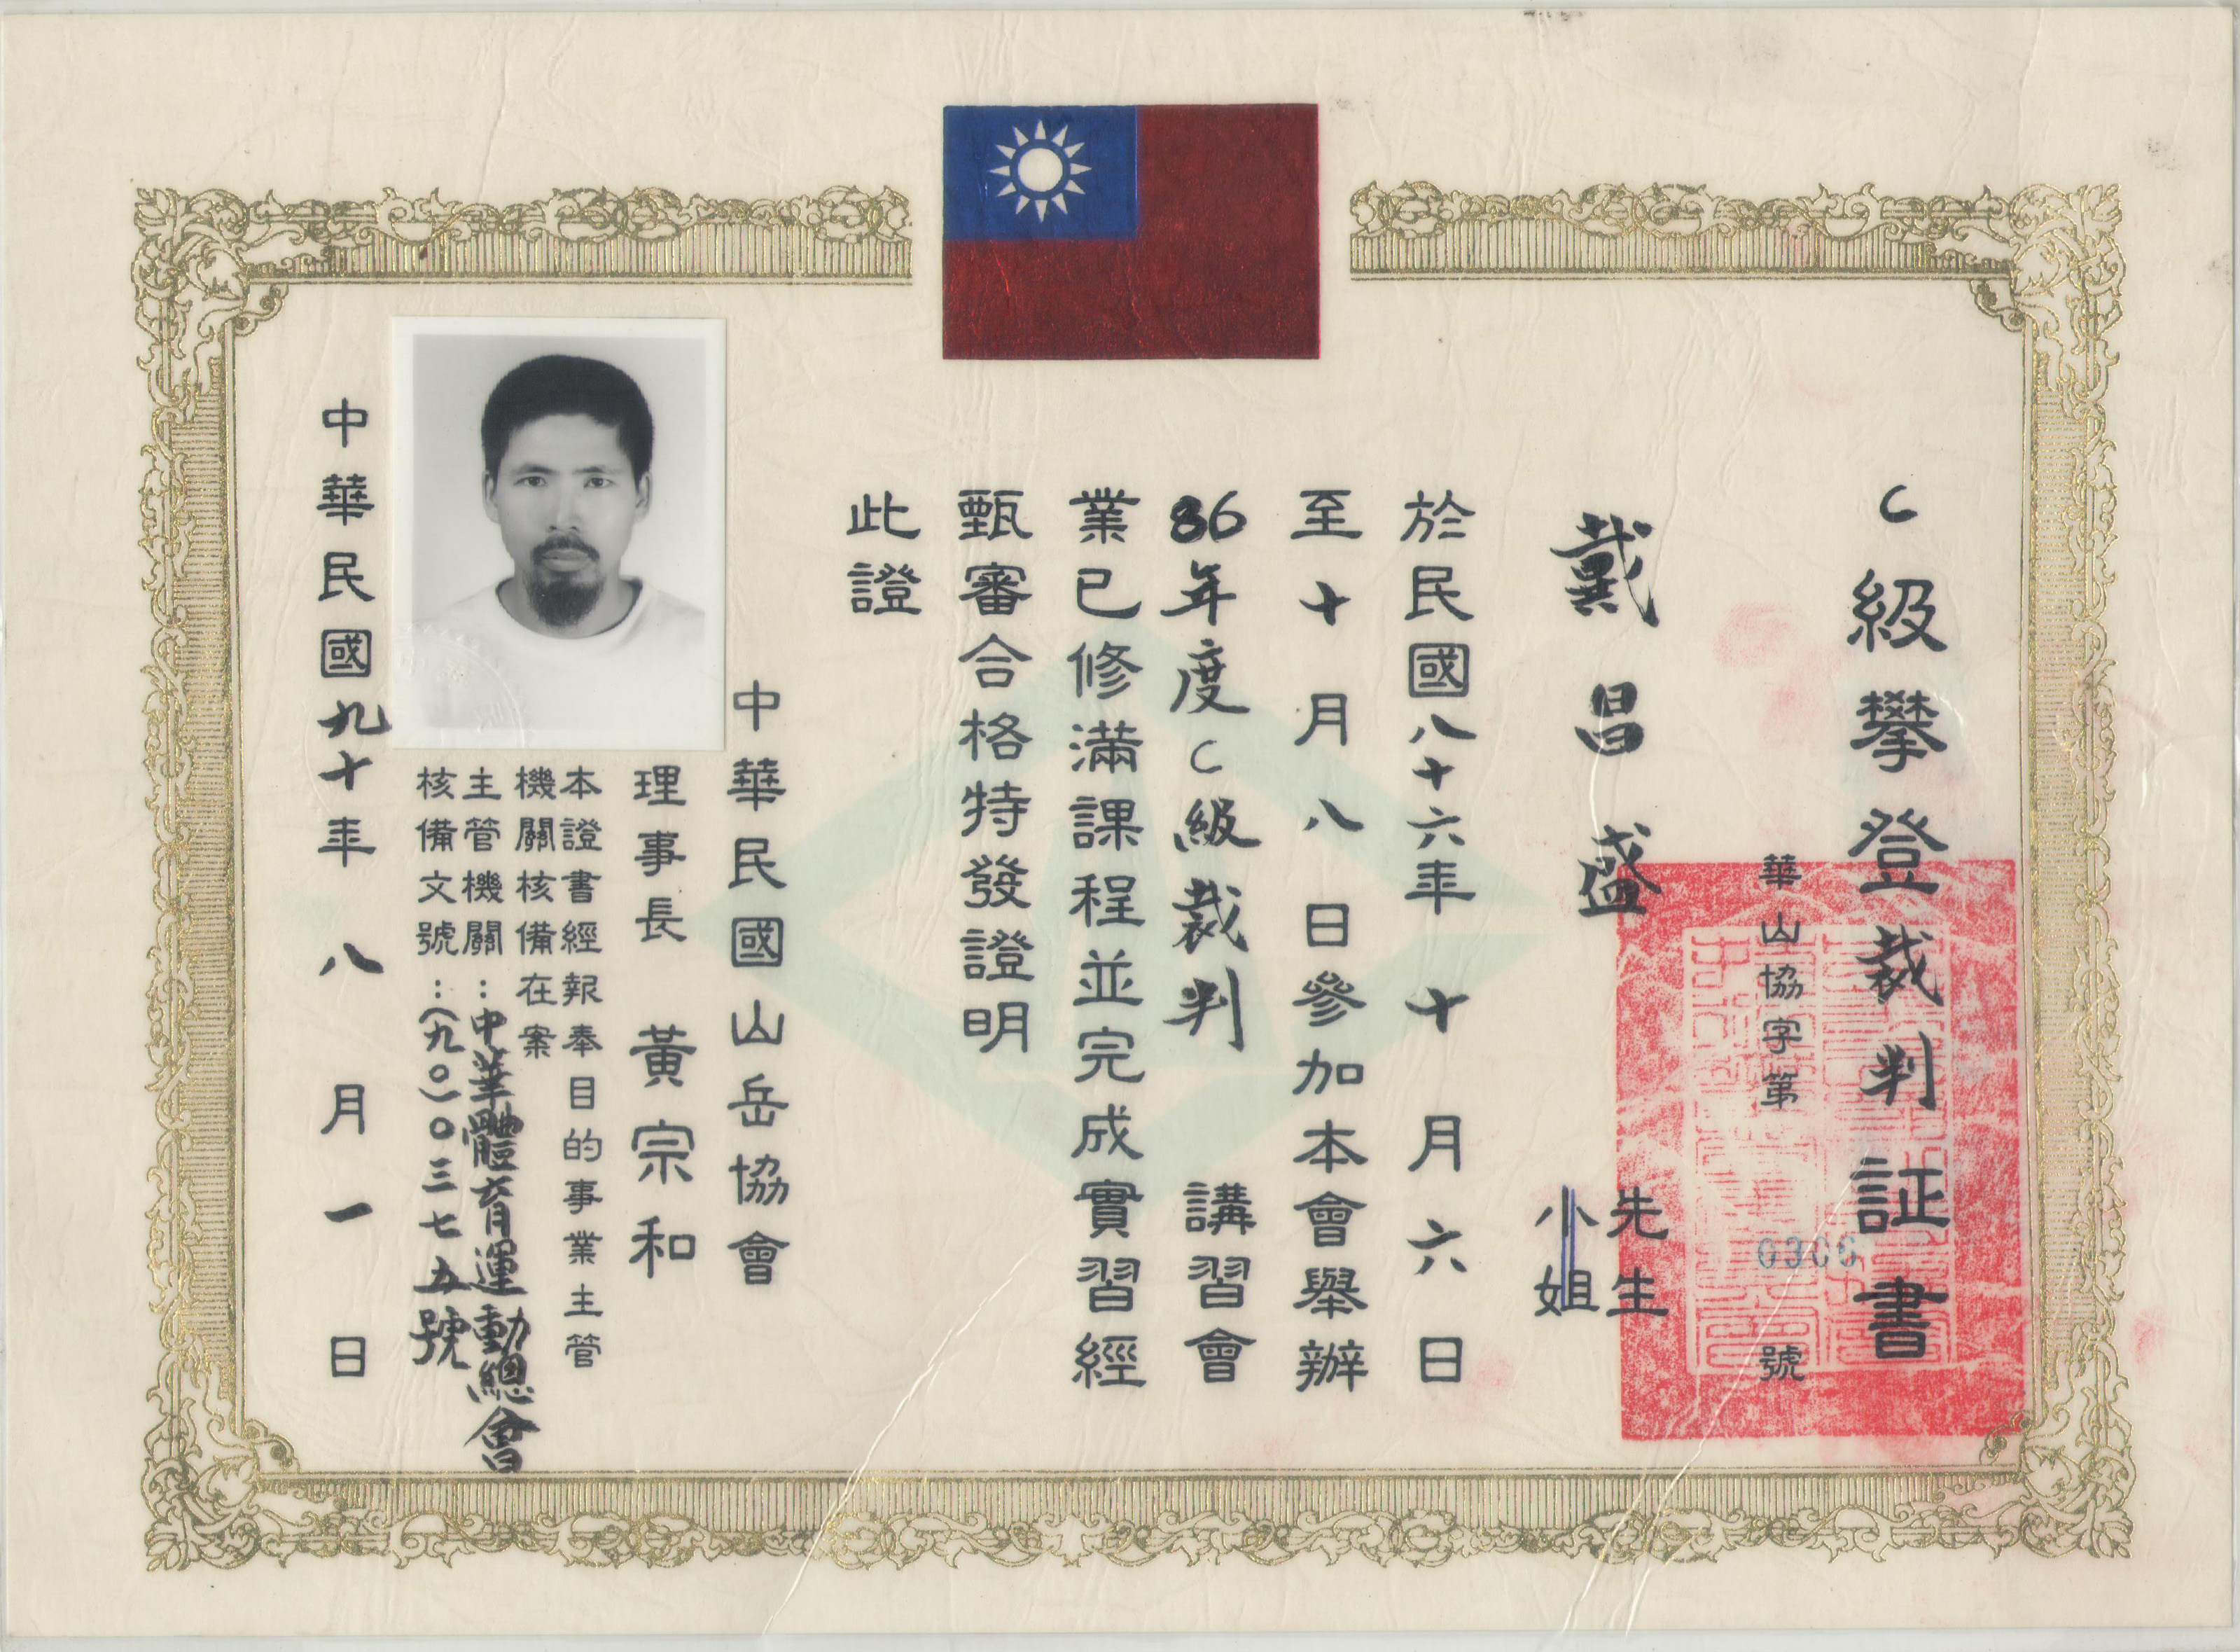 C級攀登裁判証書
華山協字第0306號
戴昌盛 先生
小姐
於民國八十六年十月六日
至十月八日參加本會舉辦
86年度C級裁判 講習會
業已修滿課程並完成實習經
甄審合格特發證明
此證
中華民國山岳協會
理事長 黃宗和
本證書經報奉目的事業主管
機關核備在案
主管機關：中華體育運動總會
核備文號：(九〇)〇三七五號
中華民國九十年八月一日